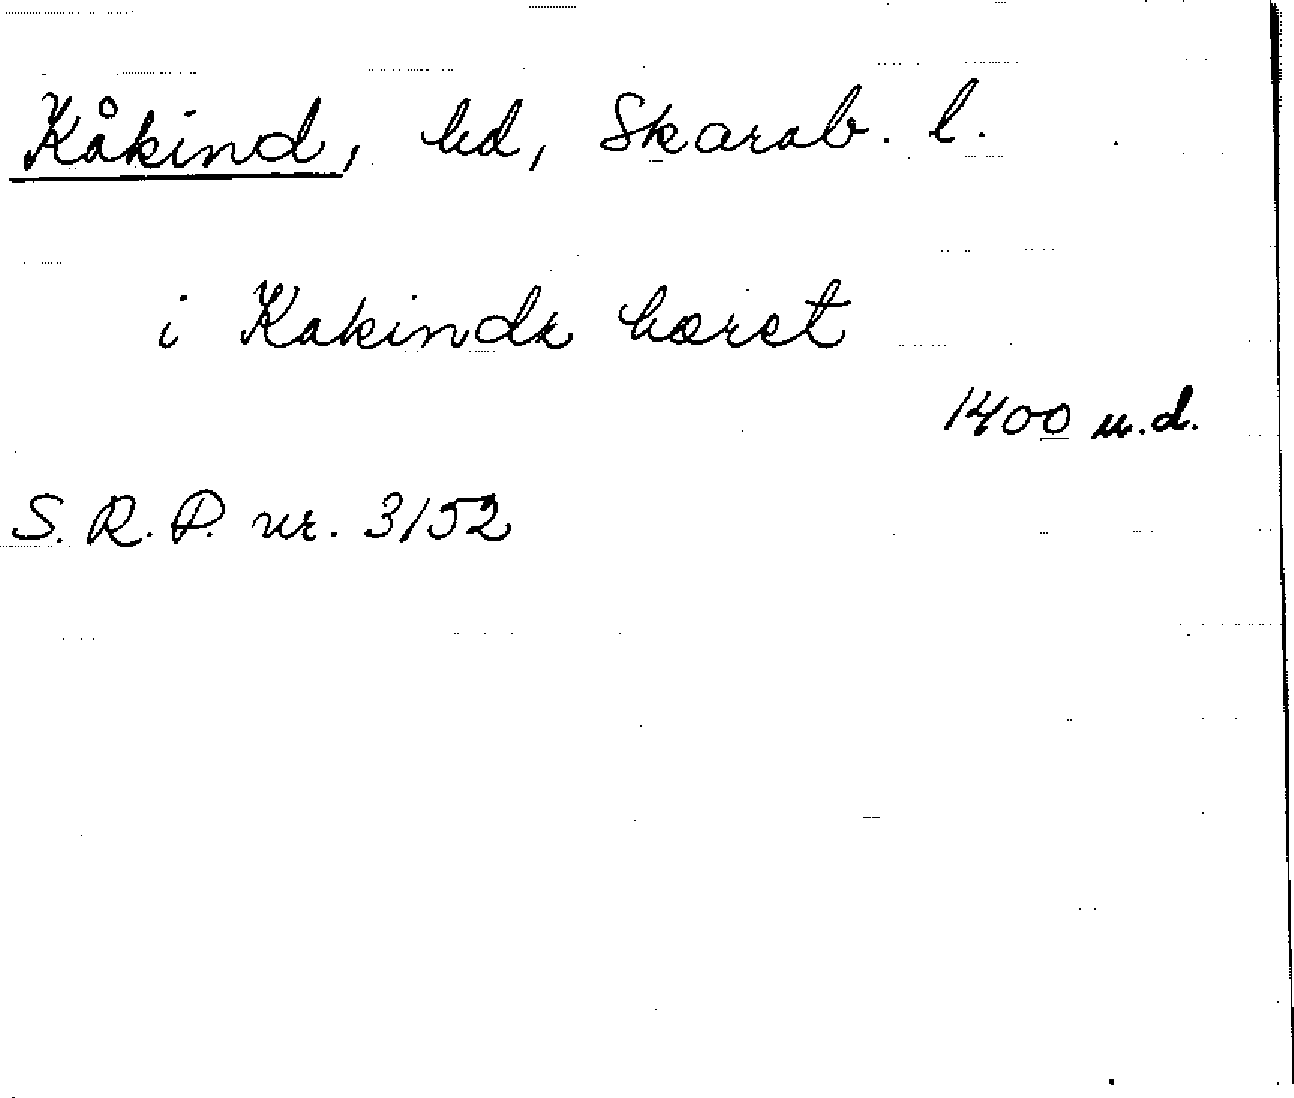 Kåkind, hd, Skarab. l.
i Kakindx hæret
1400 u.d.
S.R.P. nr. 3152